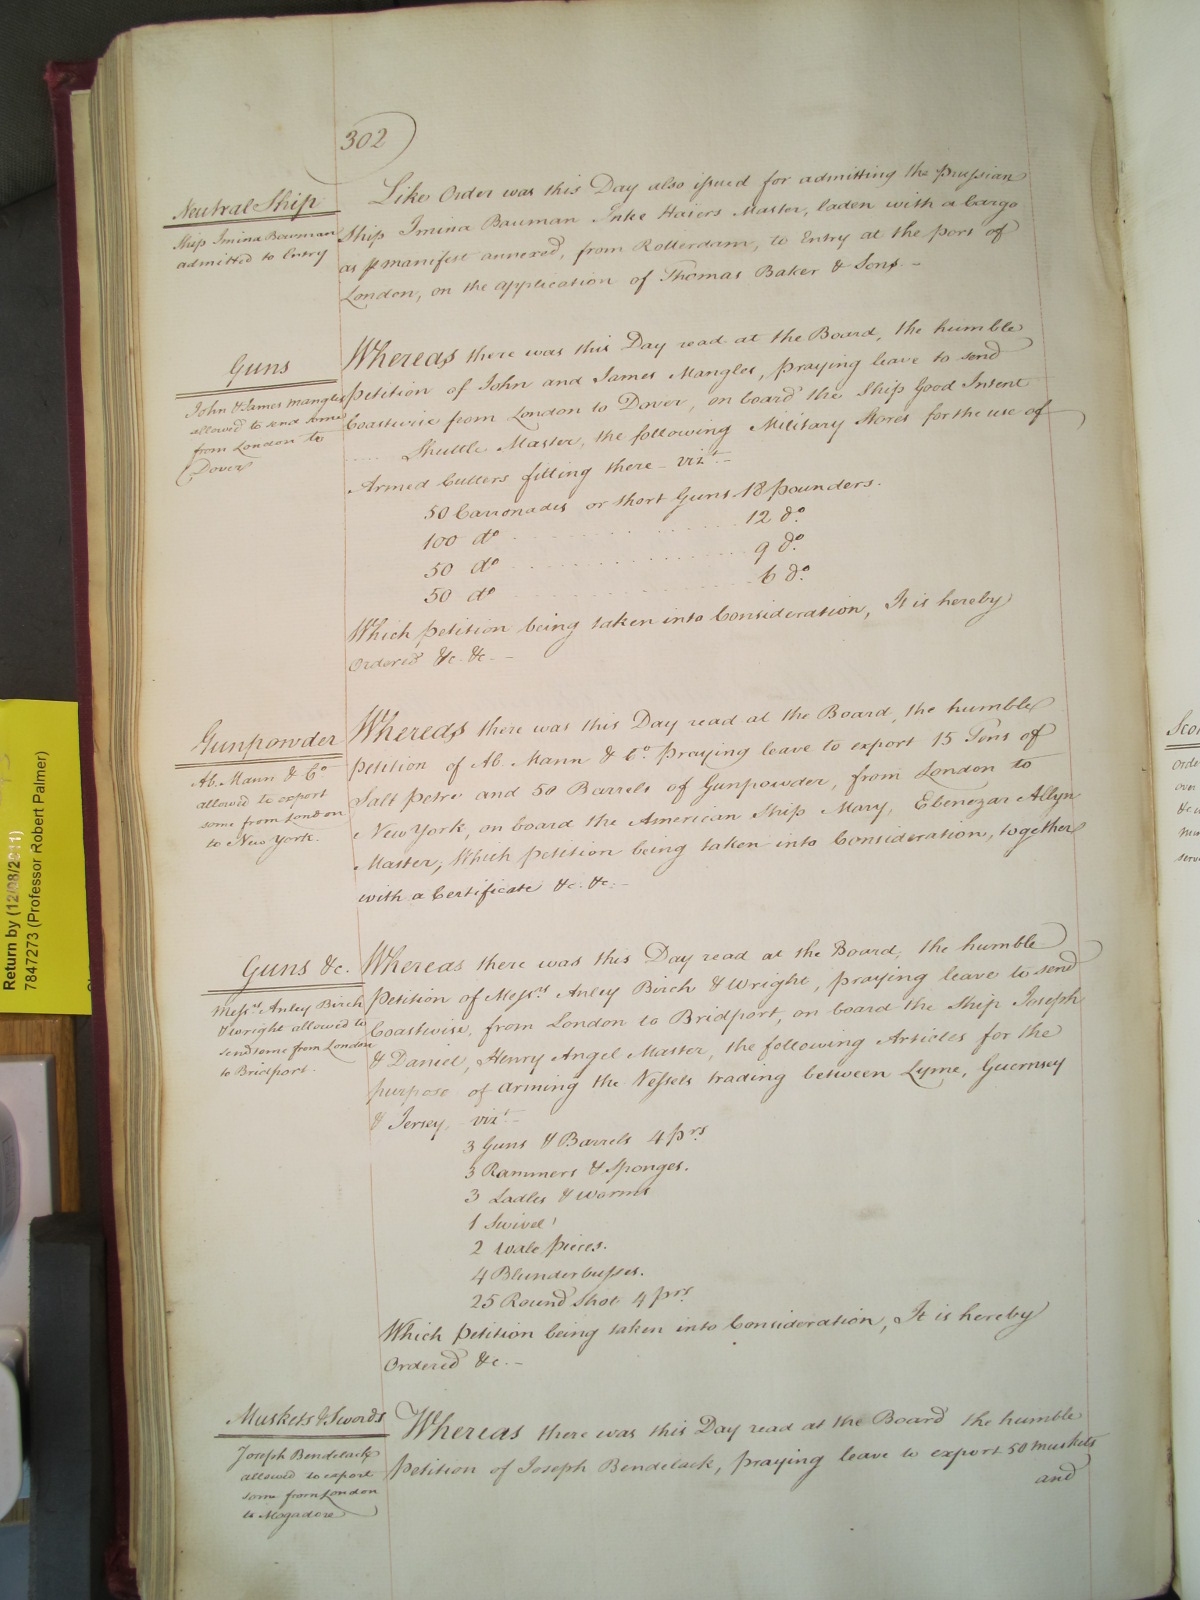 302
Neutral Ship
Ship Imina Bowman
admitted to Entry
Like Order was this Day also issued for admitting the Prussian
Ship Imina Bauman Inke Haiers Master, laden with a Cargo
as p manifest annexed, from Rotterdam, to Entry at the port of
London, on the application of Thomas Baker & Sons. -
Guns
John & James Mangles
allowed to send some
from London to
Dover
Whereas there was this Day read at the Board, the humble
petition of John and James Mangles, praying leave to send
Coastwise from London to Dover, on board the Ship Good Intent
Shuttle Master, the following Military Stores for the use of
Armed Cutters fitting there - vizt. -
50 Carronades or short Guns 18 pounders.
100 do . . . . . . . . . . 12 do.
50 do . . . . . . . . . . 9 do.
50 do . . . . . . . . . . 6 do.
Which petition being taken into Consideration, It is hereby
Ordered &c. &c. -
Gunpowder
Ab. Mann & Co.
allowed to export
some from London
to New York.
Whereas there was this Day read at the Board, the humble
petition of Ab. Mann & Co. praying leave to export 15 Tons of
Salt petre and 50 Barrels of Gunpowder, from London to
New York, on board the American Ship Mary, Ebenezar Allyn
Master, Which petition being taken into Consideration, together
with a Certificate &c. &c. -
Guns &c.
Messrs Anley Birch
& Wright allowed to
send some from London
to Bridport.
Whereas there was this Day read at the Board, the humble
Petition of Messrs Anley Birch & Wright, praying leave to send
Coastwise, from London to Bridport, on board the Ship Joseph
& Daniel, Henry Angel Master, the following Articles for the
purpose of arming the Vessels trading between Lyme, Guernsey
& Jersey, vizt. -
3 Guns & Barrels 4 prs
3 Rammers & Sponges.
3 Ladles & worms
1 Swivel
2 Wale pieces.
4 Blunderbusses.
25 Round Shot 4 prs
Which petition being taken into Consideration, It is hereby
Ordered &c. -
Muskets & Swords
Joseph Bendelack
allowed to export
some from London
to Mogadore
Whereas there was this Day read at the Board the humble
Petition of Joseph Bendelack, praying leave to export 50 muskets
and
Return by (12/08/2011)
7847273 (Professor Robert Palmer)